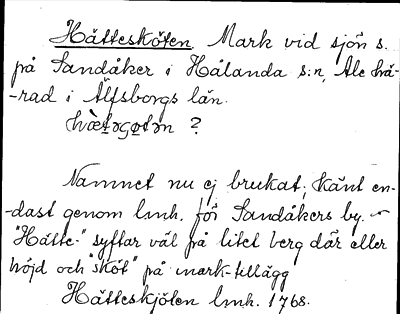 Hättesköten. Mark vid sjön s.
på Sandåker i Hålanda s:n, Ale hä-
-rad i Älfsborgs län.
?
Namnet nu ej brukat; känt en-
-dast genom lmh. för Sandåkers by. -
"Hätte-" syftar väl på litet berg där eller
höjd och "sköt" på mark-tillägg
Hätteskjöten lmh. 1768.